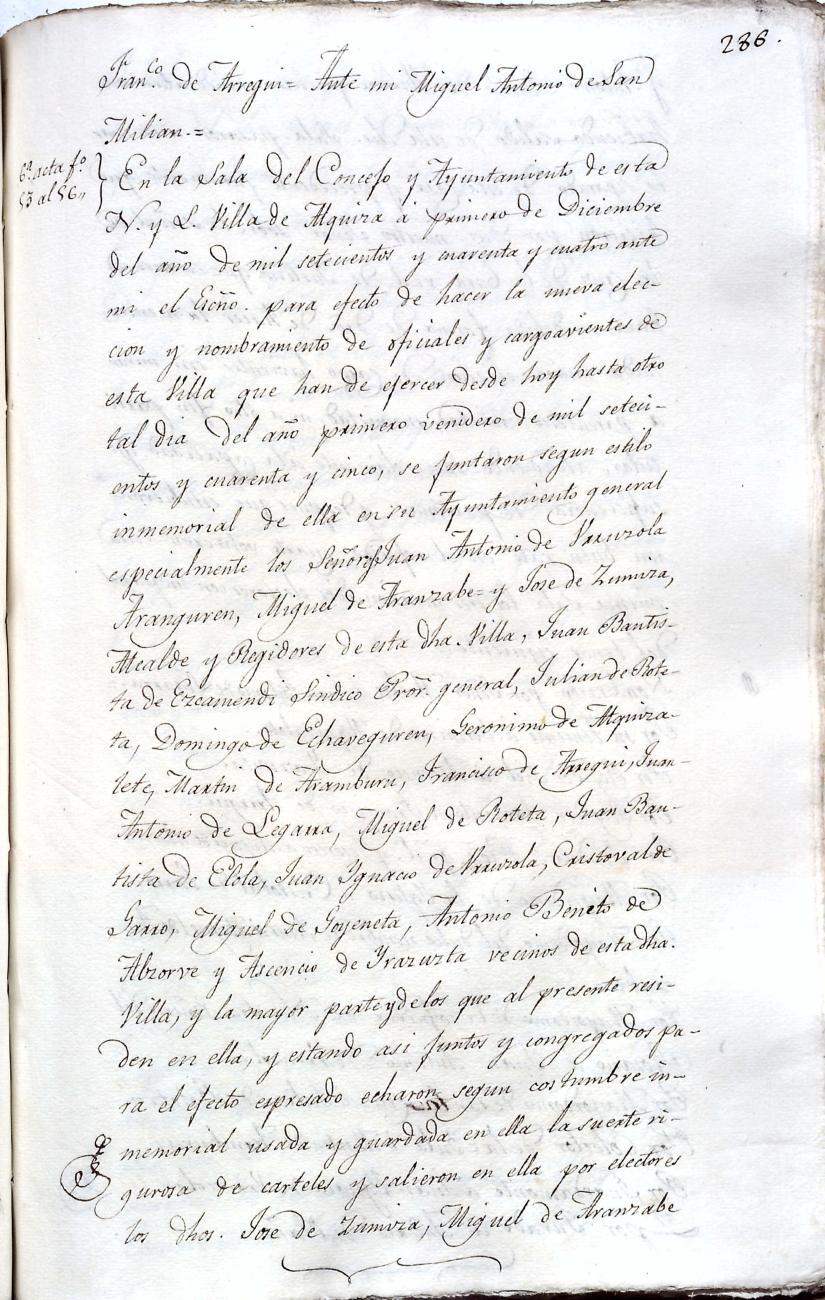 286.
Fran.co de Arregui= Ante mi Miguel Antonio de San
Milian.=
6ª acta fº
53 al 56,,
En la Sala del Concejo y Ayuntamiento de esta
N. y L. Villa de Alquiza á primero de Diciembre
del año de mil setecientos y cuarenta y cuatro ante
mi el Esćño. para efecto de hacer la nueva elec-
cion y nombramiento de oficiales y cargoavientes de
esta Villa que han de ejercer desde hoy hasta otro
tal dia del año primero venidero de mil seteci-
entos y cuarenta y cinco, se juntaron segun estilo
inmemorial de ella en su Ayuntamiento general
especialmente los Señores Juan Antonio de Urruzola
Aranguren, Miguel de Aranzabe= y Jose de Zumiza,
Alcalde y Regidores de esta dha. Villa, Juan Bautis-
ta de Ezcamendi Sindico Pror. general, Julian de Rote-
ta, Domingo de Echaveguren, Geronimo de Alquiza-
lete, Martin de Aramburu, Francisco de Arregui, Juan-
Antonio de Legarra, Miguel de Roteta, Juan Bau-
tista de Elola, Juan Ygnacio de Urruzola, Cristoval de
Garro, Miguel de Goyeneta, Antonio Benito de
Abzorve y Ascencio de Yrazuzta vecinos de esta dha.
Villa, y la mayor parte y de los que al presente resi-
den en ella, y estando asi juntos y congregados pa-
ra el efecto espresado echaron segun costumbre in-
memorial usada y guardada en ella la suerte ri-
gurosa de carteles y salieron en ella por electores
los dhos. Jose de Zumiza, Miguel de Aranzabe